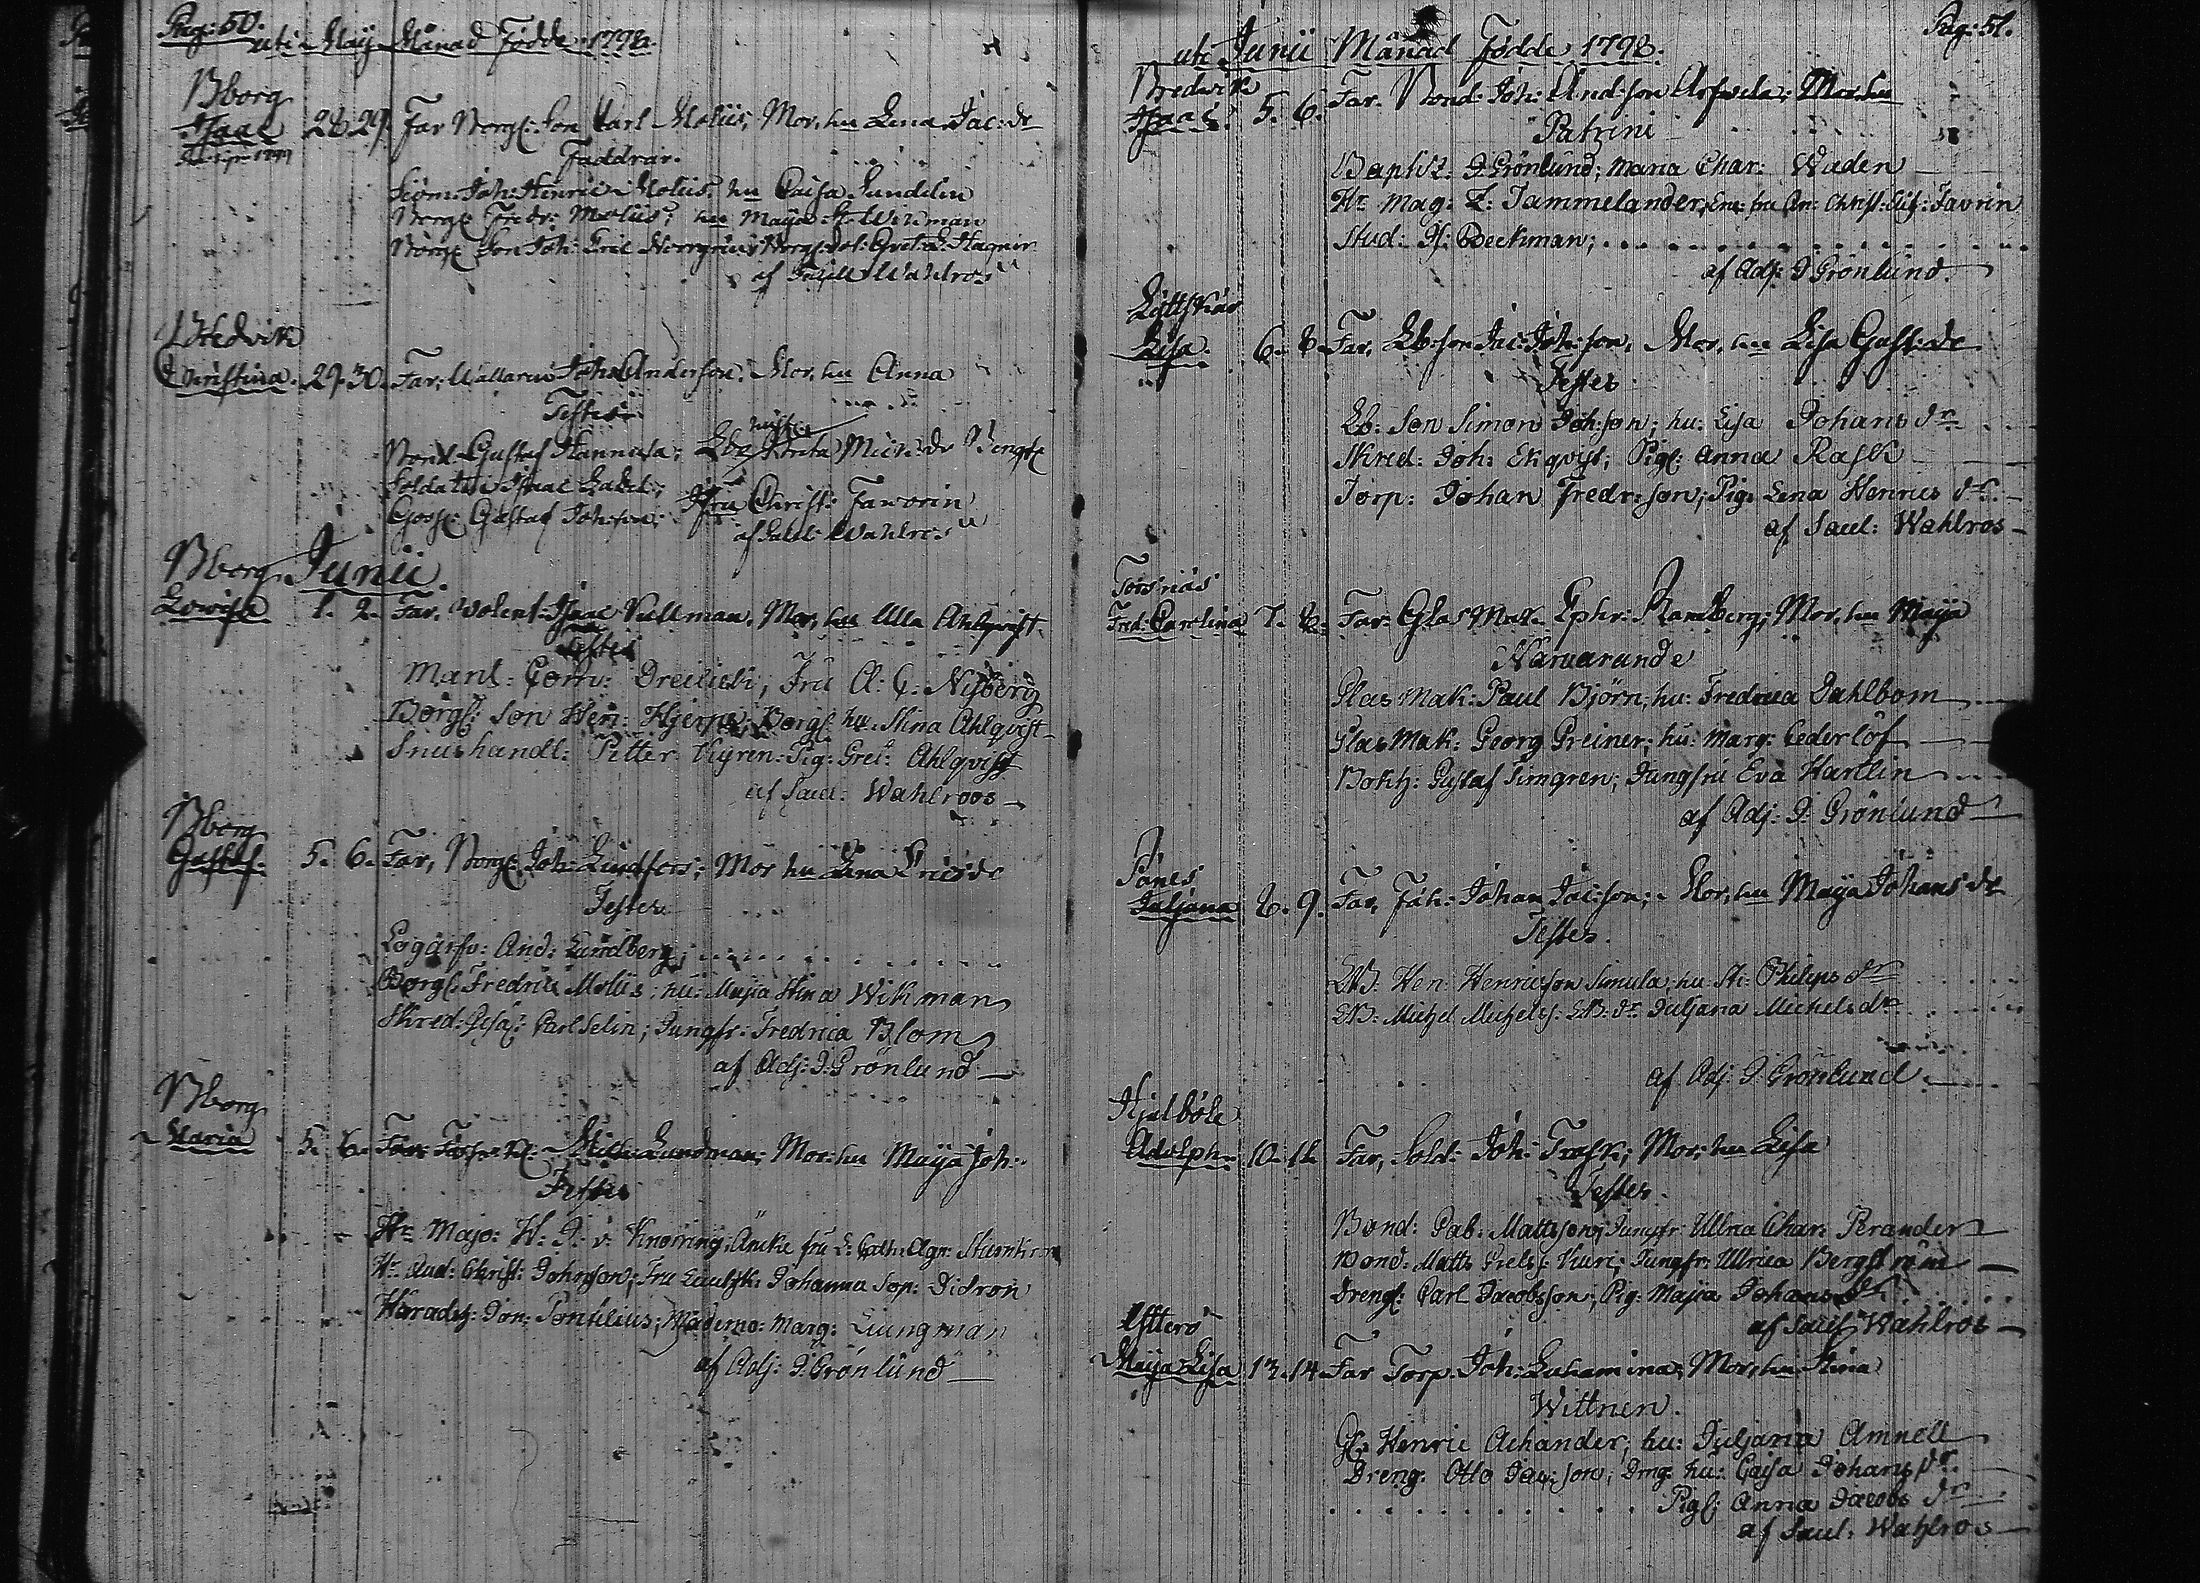 Pag: 50.
uti Maÿ Månad Födde 1798.
Bborg
Isaac 28 29. Far Borgs: Son Carl Molüs, Mor, hu Lena Jac: dr
Faddrar.
Joh: Henric Molüs, hu Caisa Sundelin
Borgs: Fredr: Molüs; hu Maÿa St: Wikman
Borgs: Son Joh: Eric Norrgrén;
af Wahlroos
Bredvik
Christina. 29. 30. Far, Joh: Anderson. Mor, hu Anna
Testes
Bond: Gustaf Hannula; Mich: dr
Soldaten Isaac
Gustaf Johsson; Jfru Christ: Favorin
af Saul: Wahlros
Bborg Junii.
Lovisa 1. 2. Far, Volent: Isaac Kullman, Mor, hu Ulla Ahlqvist
Testes
Manl: Com: Dreilick, Fru A: C: Nÿberg
Borgs: Son Hen: Hjerpe; Borgs: hu. Stina Ahlqvist
Snushandl: Petter Kigren. Pig: Gret: Ahlqvist
af Saul: Wahlroos
Bborg
Gustaf. 5. 6. Far, Borgs: Joh: Lindfors; Mor hu Lena Erics dr
Testes
And: Lundberg;
Borgs: Fredric Molüs; hu: Maja Stina Wikman
Skred: Gesäl: Carl Selin; Jungfr: Fredrica Blom
af Adj: J: Grönlund
Bborg
Maria 5. 6. Far: Lundman; Mor: hu Maÿa Joh:
Testes
Hr Majo: H: J: v: Knorring; Äncke fru L: Cath: Agn: Stiernkr
Hr Aud: Christ: Johnsson; Fru Johanna Sop: Didron
Häradsh: Jon: Pontelius; Mademo: Marg: Liungman
af Adj: J: Grönlund
Pag: 51.
uti Junii Månad Födde 1798.
Bredvik
Isaac. 5. 6. Far. Bond: Joh: And:son Mor, hu
Patrini
Baptist: J Grönlund; Maria Char: Waden
Hr Mag: Z: Tammelander, Christ: Elis: Favrin
Stud: Beckman;
af Adj: J Grönlund.
Lisa. 6. 8. Far, Lb: son Jac: Joh:son, Mor, hu Lisa Gust: dr
Testes
Lb: Son Simon Joh:son; hu: Lisa Johans dr
Skred: Joh: Ekqvist; Pigs: Anna Rask
Torp: Johan Fredr:son; Pig: Lena Henrics dr
af Saul: Wahlros
Torsnäs
Fred: Carolina 7. 8. Far: Glas Mak: Ephr: Ramberg; Mor, hu Maÿa
Närvarande
Glas Mak: Paul Björn; hu: Fredrica Dahlbom
Glas Mak: Georg Greiner; hu: Marg: Cederlöf
Bokh: Gustaf Simgren; Jungfru Eva Hartlin
af Adj: J: Grönlund
Juljana 8. 9. Far, Johan Jac:son; Mor, hu Maÿa Johans dr
Testes.
LB: Hen: Henricsson Simula; hu: St: Philips dr
LB: Michel Michelss: LB: Dr Juljana Michels dr
af Adj: J: Grönlund
Kjelböle
Adolph 10. 12. Far, Sold: Joh: Trask; Mor; hu Lisa
Testes.
Bond: Gab: Mattsson; Jungfr: Ullrica Char: Brander
Bond: Matts Grelss: Kuri; Jungfr: Ullrica Bergström
Drengs: Carl Jacobsson; Pig: Maja Johans dr
af Saul: Wahlros
Ytterö
Maÿa Lisa 13. 14. Far Torp: Joh: Mor, hu Stina
Wittnen.
Henric Achander; hu: Juljana Amnell
Dreng: Otto Jac:son; Dreng: hu: Caisa Johans dr
Pigs: Anna Jacobs dr
af Saul: Wahlros